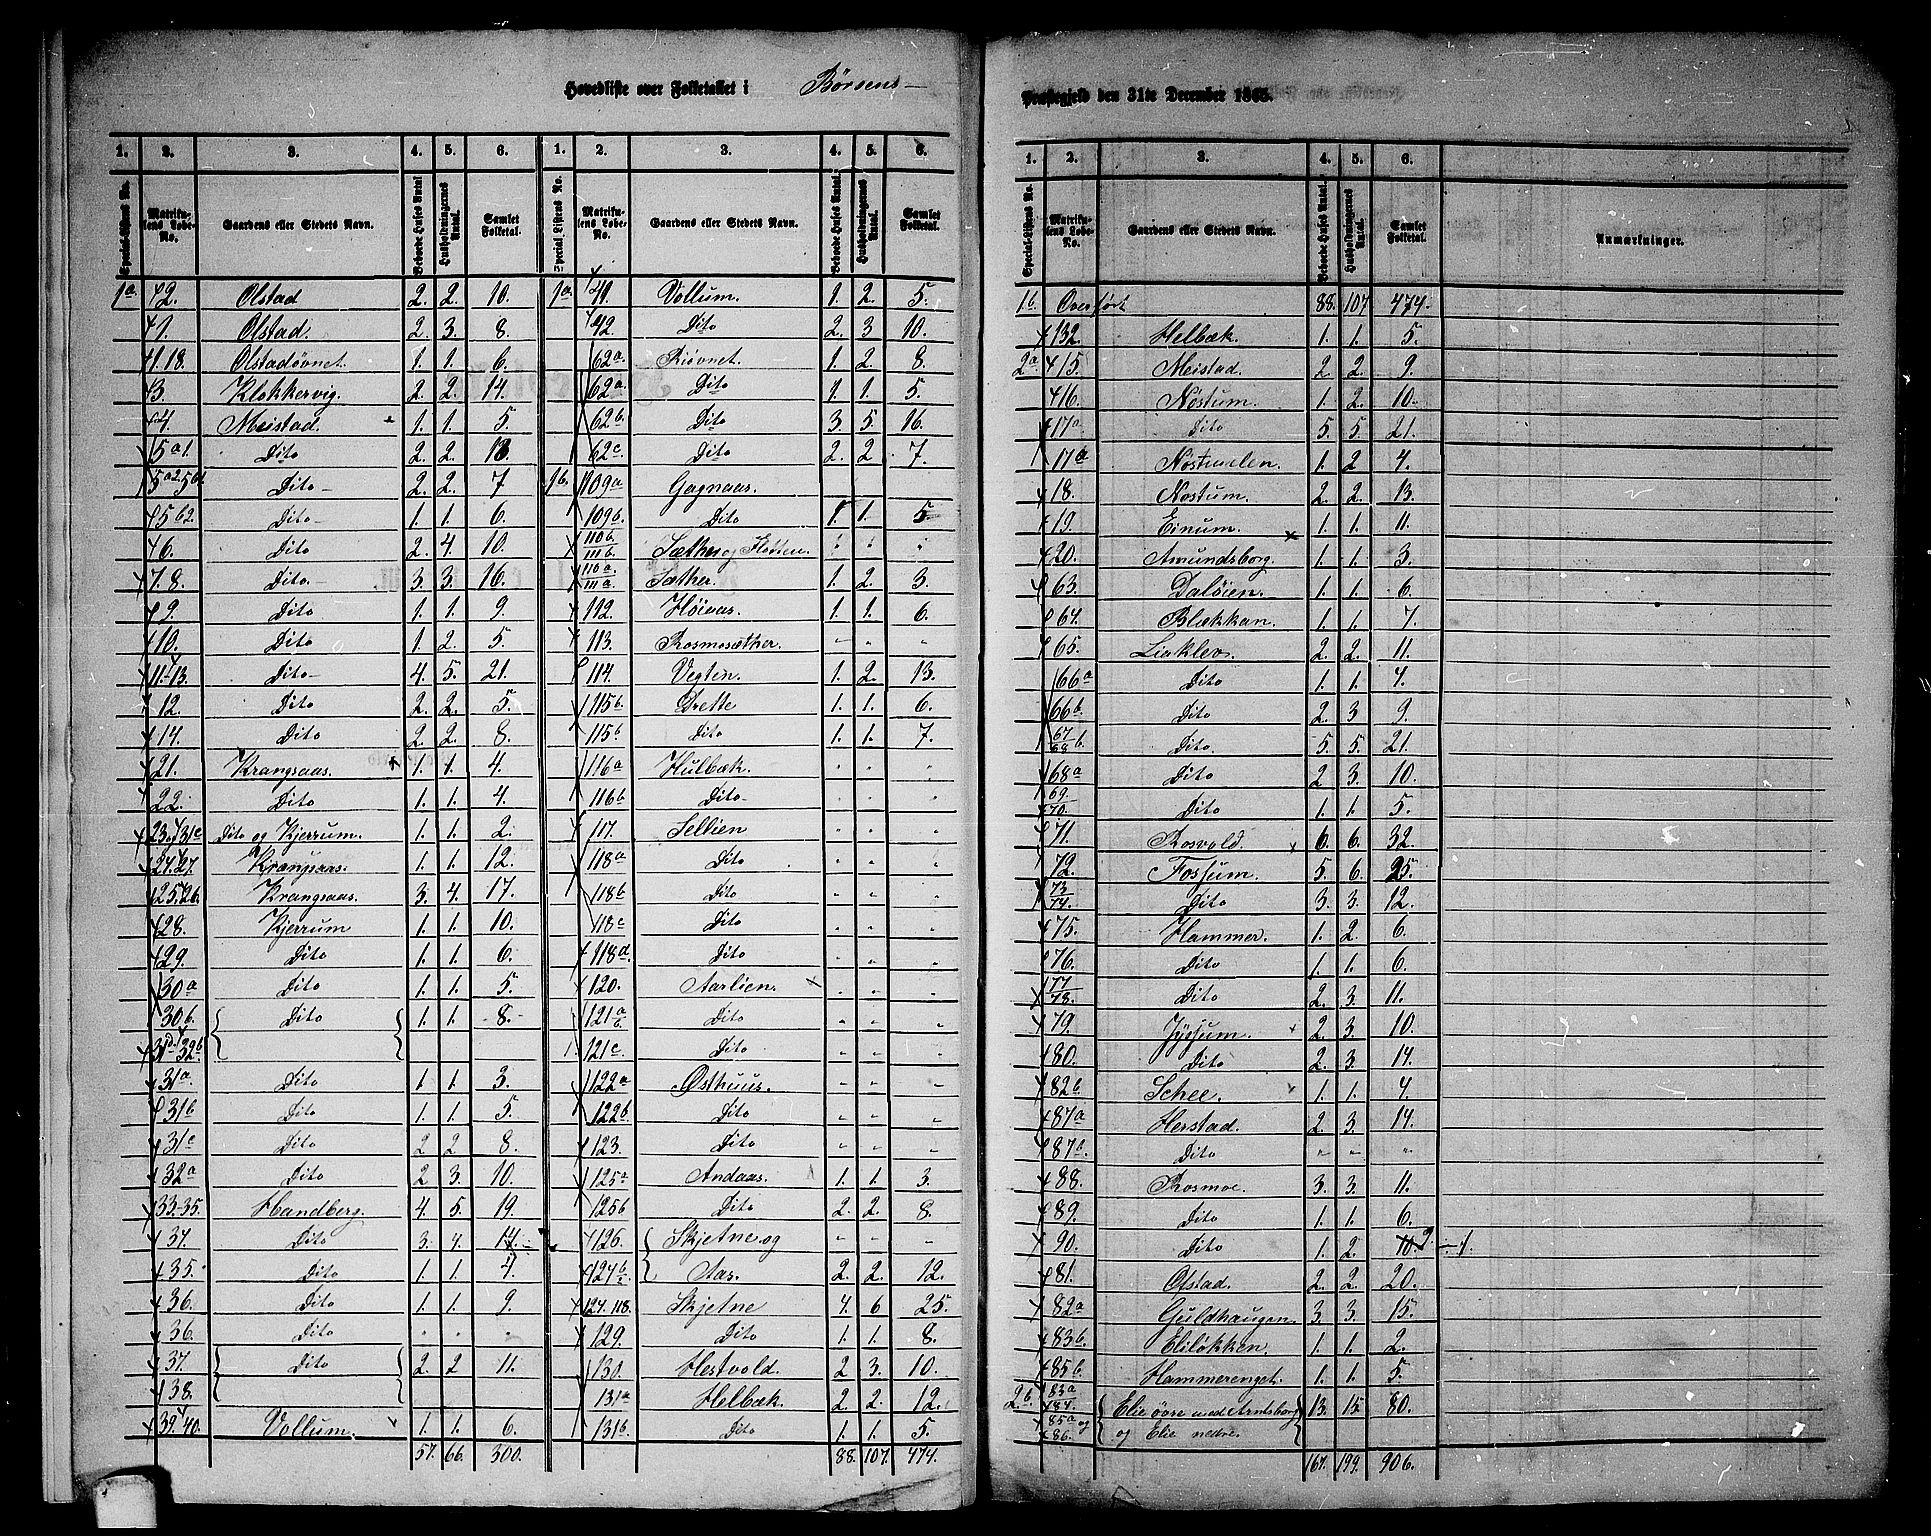 Hovedliste over Folketallet i Børsens-
Præstegjeld den 31te December 1865.
1. 2. 3. 4. 5. 6. 1. 2. 3. 4. 5. 6.
Special-Listens No. Matrikulens Løbe-No. Gaardens eller Stedets Navn. Beboede Huses Antal. Husholdningernes Antal. Samlet Folketal. Special-Listens No. Matrikulens Løbe-No. Gaardens eller Stedets Navn. Beboede Huses Antal. Husholdningernes Antal. Samlet Folketal.
1a 2. Olstad 2. 2. 10. 1a 41. Vollum. 1. 2. 5.
1. Olstad. 2. 3. 8. 42. Dito 2. 3 10.
1.18. Olstadøvnet. 1. 1. 6. 62a Riøvnet. 1. 2. 8.
3. Klokkervig. 2. 2. 14. 62a Dito 1. 1. 5.
4. Meistad. 1. 1. 5. 62b Dito 3. 5. 16.
5a1. Dito 2. 2. 62c Dito 2. 2. 7.
Dito 2. 2. 7 1b. 109a Gagnaas.
5b2. Dito 1. 1. 6. 109b. Dito 1. 1. 5.
6. Dito 2. 4. 10. 110b/111b. Sæther og Flotten. " " "
7.8. Dito 3. 3. 16. 110a./111a. Sæther. 1. 2. 3.
9. Dito 1. 1. 9. 112. Høiaas. 1. 1. 6.
10. Dito 1. 2. 5. 113. Rosmosæther. " " "
11.13. Dito 4. 5. 21. 114. Vegten. 1. 2. 13.
12. Dito 2. 2. 5. 115b Grette 1. 1. 6.
14. Dito 2. 2. 8. 115b Dito 1. 1. 7.
21. Krangsaas. 1. 1. 4. 116a Hulbæk. " " "
22. Dito 1. 1. 4. 116b Dito " " "
23. 31c Dito og Kjerrum. 1. 1. 2. 117. Sellien " " "
24.27. Krangsaas. 1. 1. 12. 118a Dito " " "
25.26. Krangsaas. 3. 4. 17. 118b Dito " " "
28. Kjerrum 1. 1. 10. 118c Dito " " "
29. Dito 1. 1. 6. 118d Dito " " "
30a Dito 1. 1. 5. 120. Aarlien. " " "
30b. Dito 1. 1. 8. 121a/b. Dito " " "
32b. 121c. Dito " " "
31a. Dito 1. 1. 3. 122a Østhuus. " " "
31b Dito 1. 1. 5. 122b. Dito " " "
31c Dito 2 2 8. 123. Dito " " "
32a Dito 2 3. 10. 125a Andaas. 1. 1. 3.
33.35. Handberg. 4. 5. 19. 125b Dito 2. 2. 8.
37. Dito 3. 4. 14. 126. Skjetne og " " "
35. Dito 1. 1. 4. 124b Aas. 2. 2. 12.
36. Dito 1. 1. 9. 124.118. Skjetne 4. 6 25.
36. Dito " " " 129. Dito 1. 1. 8.
37. Dito 2. 2 11. 130. Hestvold 2 3. 10.
38. 131a Helbæk. 2 2. 12.
39. 40. Vollum. 1. 1. 6. 131b. Dito 1. 1. 5.
57. 66. 300. 88. 107. 474.
1. 2. 3. 4. 5. 6.
Special-Listens No. Matrikulens Løbe-No. Gaardens eller Stedets Navn. Beboede Huses Antal. Husholdningernes Antal. Samlet Folketal. Anmærkninger.
1b. Overført 88. 107 474.
132. Helbæk. 1. 1. 5.
2a 15. Meistad. 2 2. 9.
16. Nostum. 1. 2. 10.
17a Dito 5. 5. 21.
17a Nostumlen. 1. 2 4.
18. Nostum. 2. 2. 13.
19. Einum. 1. 1. 11.
20. Amundsborg. 1. 1. 3.
63. Daløien. 1. 1. 6.
64. Blekkan. 1. 1. 7.
65. Liaklev. 2. 2. 11.
66a Dito 1. 1. 4.
66b Dito 2. 3 9.
67/68 b. Dito. 5. 5. 21.
68a Dito 2 3. 10.
69./70. Dito. 1. 1. 5.
71. Rosvold. 6. 6. 32.
72. Fossum. 5. 6. 25.
73/74. Dito 3. 3. 12.
75. Hammer. 1. 2. 6.
76. Dito 1. 1. 6.
77/78. Dito 2. 3. 11.
79. Jyssum. 2. 3. 10.
80. Dito 2. 3. 14.
82b Schee. 1. 1. 4.
87a Herstad. 2 3. 14.
87b. Dito " " "
88. Rosmoe. 3. 3. 11.
89. Dito 1. 1. 6.
90. Dito 1. 2. 10. 9. ÷ 1.
81. Ofstad. 2. 2. 20.
82a Guldhaugen. 3. 3. 15.
83b. Eliløkken. 1. 1. 2.
85b. Hammerenget. 1. 1. 5.
2b. 83a/84. Elie øvre med Arntsborg 13. 15 80.
85a og 86. og Elie nedre.
167. 199. 906.